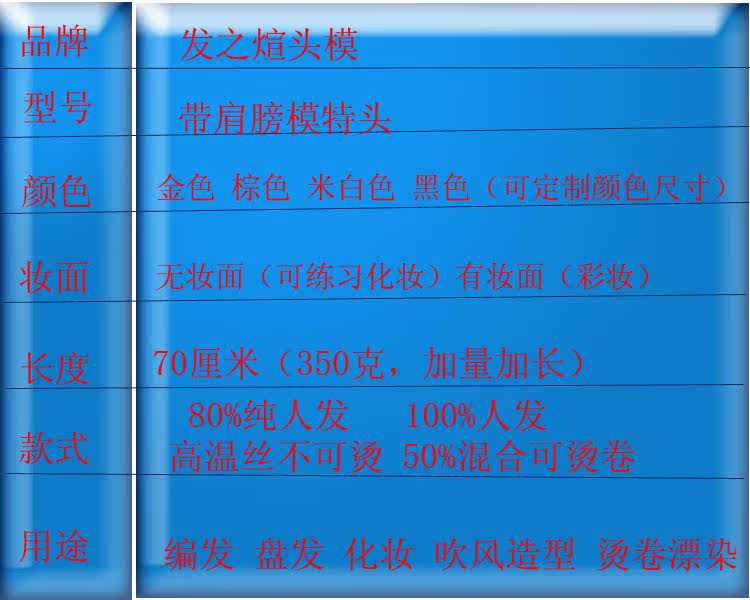 品牌 发之煊头模
型号 带肩膀模特头
颜色 金色 棕色 米白色 黑色（可定制颜色尺寸）
妆面 无妆面（可练习化妆）有妆面（彩妆）
长度 70厘米（350克，加量加长）
80%纯人发 100%人发
款式 高温丝不可烫 50%混合可烫卷
用途 编发 盘发 化妆 吹风造型 烫卷漂染